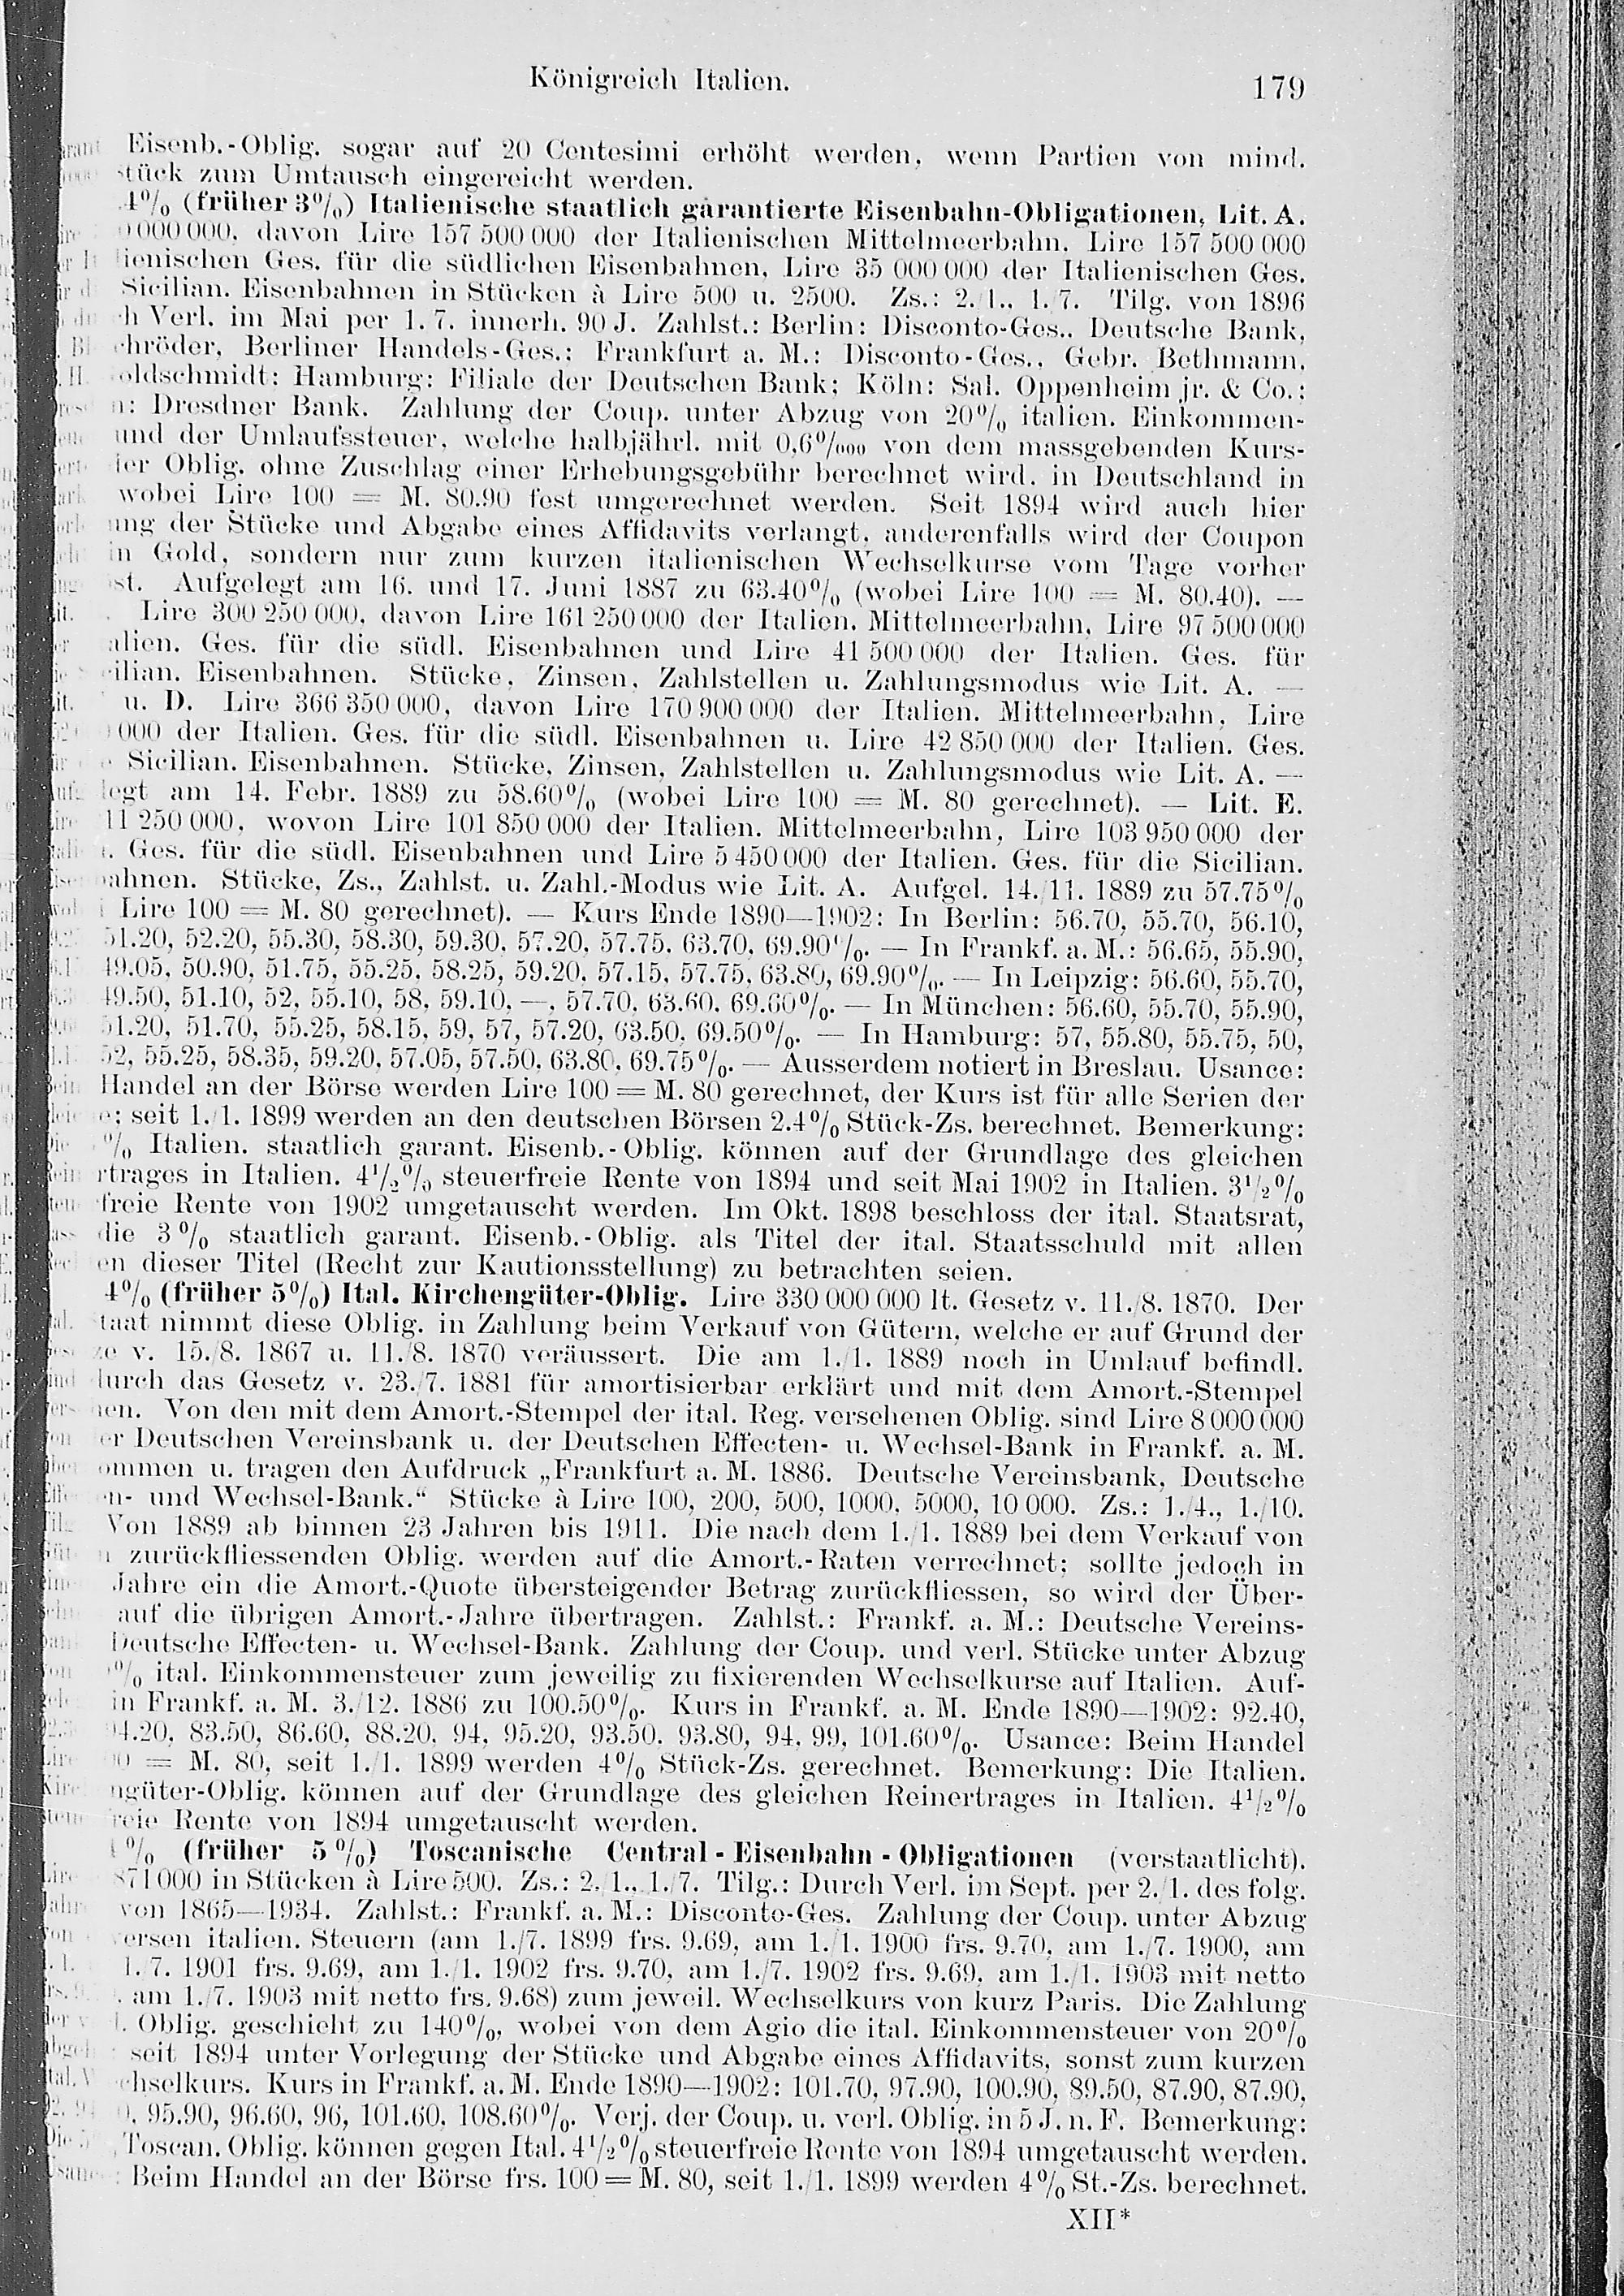 Königreich Italien. 179
Eisenb.-Oblig. sogar auf 20 Centesimi erhöht werden, wenn Partien von mind.
stück zum Umtausch eingereicht werden.
4% (früher 3%) Italienische staatlich garantierte Eisenbahn-Obligationen, Lit. A.
000 000, davon Lire 157 500 000 der Italienischen Mittelmeerbahn, Lire 157 500 000
ienischen Ges. für die südlichen Eisenbahnen, Lire 35 000 000 der Italienischen Ges.
Sicilian. Eisenbahnen in Stücken à Lire 500 u. 2500. Zs.: 2./1., 1./7. Tilg. von 1896
h Verl. im Mai per 1. 7. innerh. 90 J. Zahlst.: Berlin: Disconto-Ges., Deutsche Bank,
hröder, Berliner Handels-Ges.; Frankfurt a. M.: Disconto-Ges., Gebr. Bethmann,
oldschmidt; Hamburg: Filiale der Deutschen Bank; Köln: Sal. Oppenheim jr. & Co.;
n: Dresdner Bank. Zahlung der Coup. unter Abzug von 20% italien. Einkommen-
und der Umlaufssteuer, welche halbjährl. mit 0,6‰ von dem massgebenden Kurs-
der Oblig. ohne Zuschlag einer Erhebungsgebühr berechnet wird, in Deutschland in
wobei Lire 100 = M. 80.90 fest umgerechnet werden. Seit 1894 wird auch hier
ung der Stücke und Abgabe eines Affidavits verlangt, anderenfalls wird der Coupon
in Gold, sondern nur zum kurzen italienischen Wechselkurse vom Tage vorher
st. Aufgelegt am 16. und 17. Juni 1887 zu 63.40% (wobei Lire 100 = M. 80.40). —
Lire 300 250 000, davon Lire 161 250 000 der Italien. Mittelmeerbahn, Lire 97 500 000
alien. Ges. für die südl. Eisenbahnen und Lire 41 500 000 der Italien. Ges. für
ilian. Eisenbahnen. Stücke, Zinsen, Zahlstellen u. Zahlungsmodus wie Lit. A. —
u. D. Lire 366 350 000, davon Lire 170 900 000 der Italien. Mittelmeerbahn, Lire
000 der Italien. Ges. für die südl. Eisenbahnen u. Lire 42 850 000 der Italien. Ges.
Sicilian. Eisenbahnen. Stücke, Zinsen, Zahlstellen u. Zahlungsmodus wie Lit. A. —
legt am 14. Febr. 1889 zu 58.60% (wobei Lire 100 = M. 80 gerechnet). — Lit. E.
11 250 000, wovon Lire 101 850 000 der Italien. Mittelmeerbahn, Lire 103 950 000 der
. Ges. für die südl. Eisenbahnen und Lire 5 450 000 der Italien. Ges. für die Sicilian.
bahnen. Stücke, Zs., Zahlst. u. Zahl.-Modus wie Lit. A. Aufgel. 14./11. 1889 zu 57.75%
i Lire 100 = M. 80 gerechnet). — Kurs Ende 1890—1902: In Berlin: 56.70, 55.70, 56.10,
51.20, 52.20, 55.30, 58.30, 59.30, 57.20, 57.75, 63.70, 69.90%. — In Frankf. a. M.: 56.65, 55.90,
49.05, 50.90, 51.75, 55.25, 58.25, 59.20, 57.15, 57.75, 63.80, 69.90%. — In Leipzig: 56.60, 55.70,
49.50, 51.10, 52, 55.10, 58, 59.10, —, 57.70, 63.60, 69.60%. — In München: 56.60, 55.70, 55.90,
51.20, 51.70, 55.25, 58.15, 59, 57, 57.20, 63.50, 69.50%. — In Hamburg: 57, 55.80, 55.75, 50,
52, 55.25, 58.35, 59.20, 57.05, 57.50, 63.80, 69.75%. — Ausserdem notiert in Breslau. Usance:
Handel an der Börse werden Lire 100 = M. 80 gerechnet, der Kurs ist für alle Serien der
e; seit 1./1. 1899 werden an den deutschen Börsen 2.4% Stück-Zs. berechnet. Bemerkung:
% Italien. staatlich garant. Eisenb.-Oblig. können auf der Grundlage des gleichen
rtrages in Italien. 4½% steuerfreie Rente von 1894 und seit Mai 1902 in Italien. 3½%
freie Rente von 1902 umgetauscht werden. Im Okt. 1898 beschloss der ital. Staatsrat,
die 3% staatlich garant. Eisenb.-Oblig. als Titel der ital. Staatsschuld mit allen
en dieser Titel (Recht zur Kautionsstellung) zu betrachten seien.
4% (früher 5%) Ital. Kirchengüter-Oblig. Lire 330 000 000 lt. Gesetz v. 11./8. 1870. Der
taat nimmt diese Oblig. in Zahlung beim Verkauf von Gütern, welche er auf Grund der
ze v. 15./8. 1867 u. 11./8. 1870 veräussert. Die am 1./1. 1889 noch in Umlauf befindl.
durch das Gesetz v. 23./7. 1881 für amortisierbar erklärt und mit dem Amort.-Stempel
hen. Von den mit dem Amort.-Stempel der ital. Reg. versehenen Oblig. sind Lire 8 000 000
er Deutschen Vereinsbank u. der Deutschen Effecten- u. Wechsel-Bank in Frankf. a. M.
ommen u. tragen den Aufdruck „Frankfurt a. M. 1886. Deutsche Vereinsbank, Deutsche
n- und Wechsel-Bank.“ Stücke à Lire 100, 200, 500, 1000, 5000, 10 000. Zs.: 1./4., 1./10.
Von 1889 ab binnen 23 Jahren bis 1911. Die nach dem 1./1. 1889 bei dem Verkauf von
n zurückfliessenden Oblig. werden auf die Amort.-Raten verrechnet; sollte jedoch in
Jahre ein die Amort.-Quote übersteigender Betrag zurückfliessen, so wird der Über-
auf die übrigen Amort.-Jahre übertragen. Zahlst.: Frankf. a. M.: Deutsche Vereins-
Deutsche Effecten- u. Wechsel-Bank. Zahlung der Coup. und verl. Stücke unter Abzug
% ital. Einkommensteuer zum jeweilig zu fixierenden Wechselkurse auf Italien. Auf-
in Frankf. a. M. 3./12. 1886 zu 100.50%. Kurs in Frankf. a. M. Ende 1890—1902: 92.40,
94.20, 83.50, 86.60, 88.20, 94, 95.20, 93.50, 93.80, 94, 99, 101.60%. Usance: Beim Handel
00 = M. 80, seit 1./1. 1899 werden 4% Stück-Zs. gerechnet. Bemerkung: Die Italien.
ngüter-Oblig. können auf der Grundlage des gleichen Reinertrages in Italien. 4½%
freie Rente von 1894 umgetauscht werden.
4% (früher 5%) Toscanische Central-Eisenbahn-Obligationen (verstaatlicht).
871 000 in Stücken à Lire 500. Zs.: 2./1., 1./7. Tilg.: Durch Verl. im Sept. per 2./1. des folg.
von 1865—1934. Zahlst.: Frankf. a. M.: Disconto-Ges. Zahlung der Coup. unter Abzug
versen italien. Steuern (am 1./7. 1899 frs. 9.69, am 1./1. 1900 frs. 9.70, am 1./7. 1900, am
1. 7. 1901 frs. 9.69, am 1./1. 1902 frs. 9.70, am 1./7. 1902 frs. 9.69, am 1./1. 1903 mit netto
, am 1./7. 1903 mit netto frs. 9.68) zum jeweil. Wechselkurs von kurz Paris. Die Zahlung
l. Oblig. geschieht zu 140%, wobei von dem Agio die ital. Einkommensteuer von 20%
seit 1894 unter Vorlegung der Stücke und Abgabe eines Affidavits, sonst zum kurzen
chselkurs. Kurs in Frankf. a. M. Ende 1890—1902: 101.70, 97.90, 100.90, 89.50, 87.90, 87.90,
0, 95.90, 96.60, 96, 101.60, 108.60%. Verj. der Coup. u. verl. Oblig. in 5 J. n. F. Bemerkung:
Toscan. Oblig. können gegen Ital. 4½% steuerfreie Rente von 1894 umgetauscht werden.
: Beim Handel an der Börse frs. 100 = M. 80, seit 1./1. 1899 werden 4% St.-Zs. berechnet.
XII*